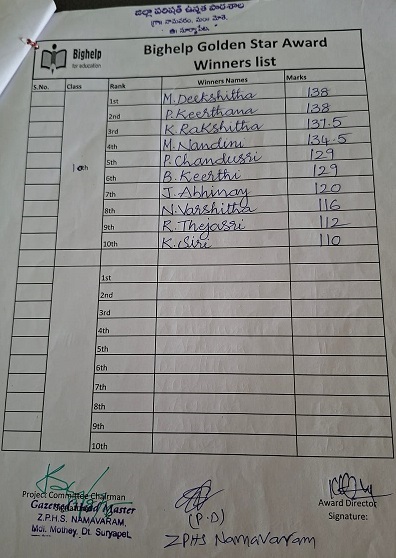 జిల్లా పరిషత్ ఉన్నత పాఠశాల
గ్రా॥ నామవరం, మండ మోతె,
జి॥ సూర్యాపేట.
Bighelp
for education
Bighelp Golden Star Award
Winners list
S.No. Class Rank Winners Names Marks
1st M. Deekshitha 138
2nd P. Keerthana 138
3rd K. Rakshitha 137.5
4th M. Nandini 134.5
5th P. Chandusri 129
10th
6th B. Keerthi 129
7th J. Abhinay 120
8th N. Varshitha 116
9th R. Thejasri 112
10th K. Siri 110
1st
2nd
3rd
4th
5th
6th
7th
8th
9th
10th
Project Committee Chairman
Gazetted Head Master
Z.P.H.S. NAMAVARAM,
Mdl. Mothey, Dt. Suryapet.
(P.D)
ZPHS Namavaram
Award Director
Signature: